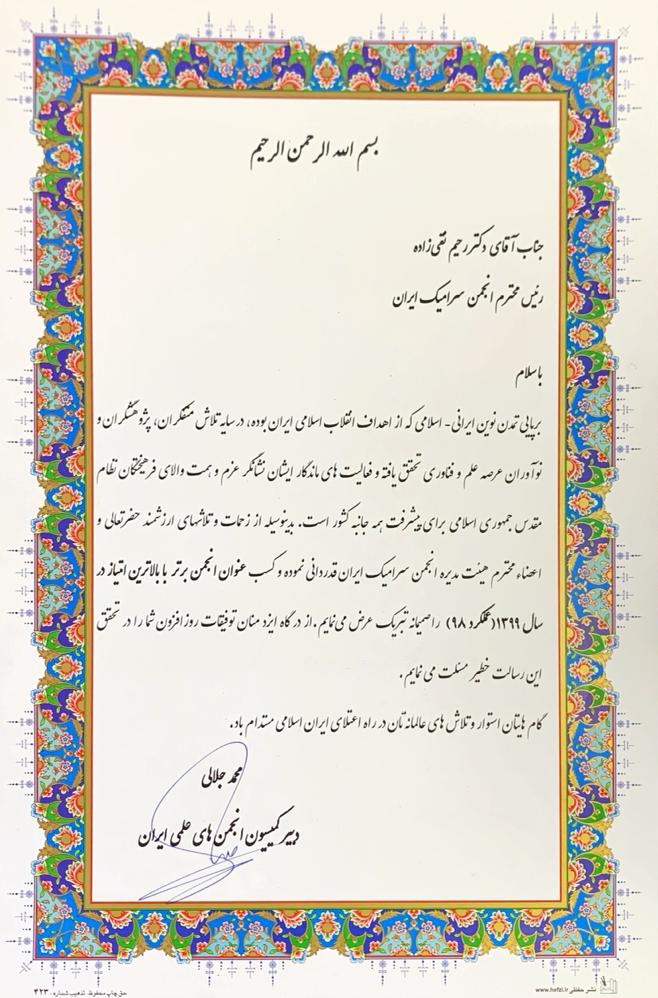 بسم الله الرحمن الرحیم
جناب آقای دکتر رحیم نقی‌زاده
رئیس محترم انجمن سرامیک ایران
باسلام
برپایی تمدن نوین ایرانی - اسلامی که از اهداف انقلاب اسلامی ایران بوده، در سایه تلاش متفکران، پژوهشگران و
نوآوران عرصه علم و فناوری تحقق یافته و فعالیت های ماندگار ایشان نشانگر عزم و همت والای فرهیختگان نظام
مقدس جمهوری اسلامی برای پیشرفت همه جانبه کشور است. بدینوسیله از زحمات و تلاشهای ارزشمند حضرتعالی و
اعضاء محترم هیئت مدیره انجمن سرامیک ایران قدردانی نموده و کسب عنوان انجمن برتر با بالاترین امتیاز در
سال ۱۳۹۹(عملکرد ۹۸) را صمیمانه تبریک عرض می‌نمایم. از درگاه ایزد منان توفیقات روز افزون شما را در تحقق
این رسالت خطیر مسئلت می نمایم.
گام هایتان استوار و تلاش های عالمانه تان در راه اعتلای ایران اسلامی مستدام باد.
محمد جلالی
دبیر کمیسیون انجمن های علمی ایران
نشر حفظی www.hefzi.ir
حق چاپ محفوظ تذهیب شماره: ۴۲۳